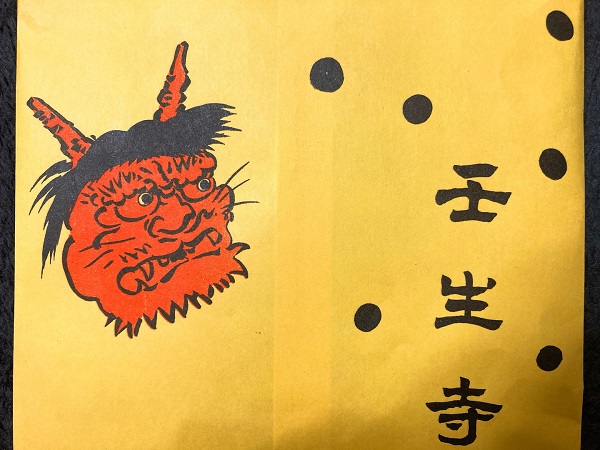 壬生寺